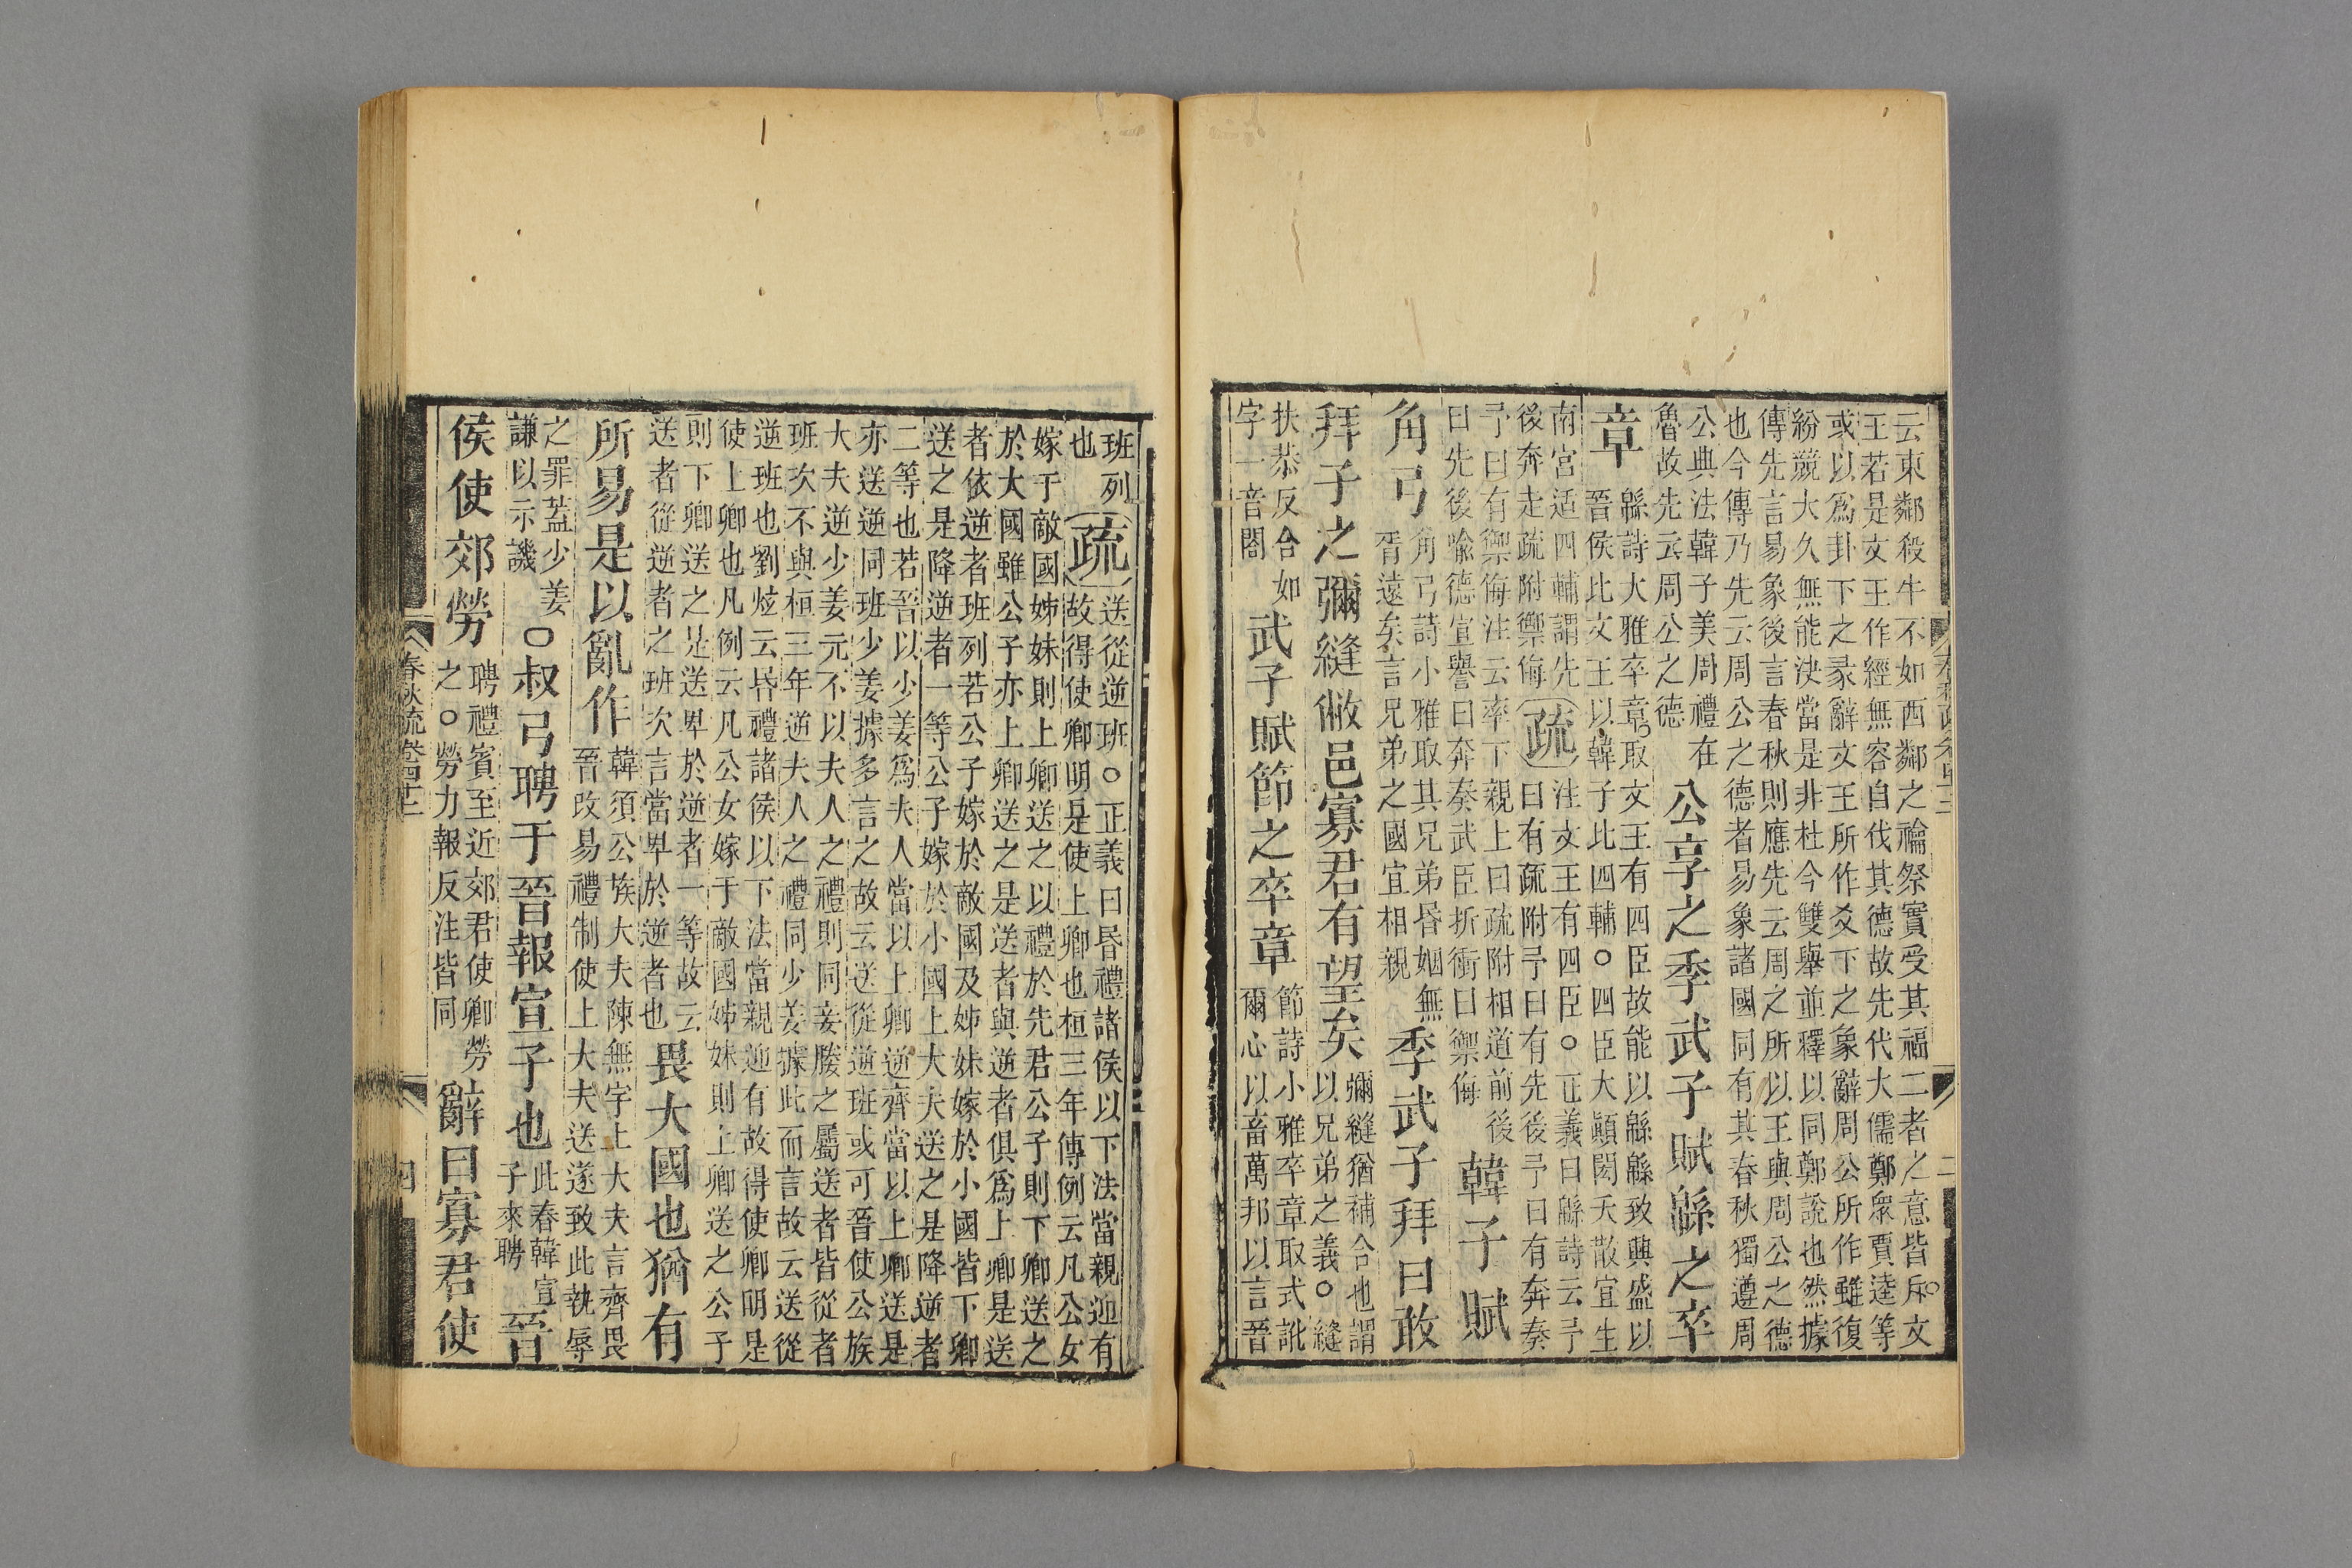 云東鄰殺牛不如西鄰之禴祭實受其福二者之意皆斥文
王若是文王作經無容自伐其德故先代大儒鄭眾賈逵等
或以爲卦下之彖辭文王所作爻下之象辭周公所作雖復
紛競大久無能決當是非杜今雙舉並釋以同鄭說也然據
傳先言易象後言春秋則應先云周之所以王與周公之德
也今傳乃先云周公之德者易象諸國同有其春秋獨遵周
公典法韓子美周禮在
魯故先云周公之德
公享之季武子賦緜之卒
章
緜詩大雅卒章取文王有四臣故能以緜緜致興盛以
晉侯比文王以韓子比四輔○四臣大顛閎夭散宜生
南宮适四輔謂先
後奔走疏附禦侮
疏
注文王有四臣○正義曰緜詩云予
曰有疏附予曰有先後予曰有奔奏
予曰有禦侮注云率下親上曰疏附相道前後
曰先後喻德宣譽曰奔奏武臣折衝曰禦侮
韓子賦
角弓
角弓詩小雅取其兄弟昏姻無
胥遠矣言兄弟之國宜相親
季武子拜曰敢
拜子之彌縫敝邑寡君有望矣
彌縫猶補合也謂
以兄弟之義○縫
扶恭反合如
字一音閤
武子賦節之卒章
節詩小雅卒章取式訛
爾心以畜萬邦以言晉
班列
也
疏
送從逆班○正義曰昏禮諸侯以下法當親迎有
故得使卿明是使上卿也桓三年傳例云凡公女
嫁于敵國姊妹則上卿送之以禮於先君公子則下卿送之
於大國雖公子亦上卿送之是送者與逆者俱爲上卿是送
者依逆者班列若公子嫁於敵國及姊妹嫁於小國皆下卿
送之是降逆者一等公子嫁於小國上大夫送之是降逆者
二等也若晉以少姜爲夫人當以上卿逆齊當以上卿送是
亦送逆同班少姜據多言之故云送從逆班或可晉使公族
大夫逆少姜元不以夫人之禮則同妾媵之屬送者皆從者
班次不與桓三年逆夫人之禮同少姜據此而言故云送從
逆班也劉炫云昏禮諸侯以下法當親迎有故得使卿明是
使上卿也凡例云凡公女嫁于敵國姊妹則上卿送之公子
則下卿送之是送卑於逆者一等故云
送者從逆者之班次言當卑於逆者也
畏大國也猶有
所易是以亂作
韓須公族大夫陳無宇上大夫言齊畏
晉改易禮制使上大夫送遂致此執辱
之罪蓋少姜
謙以示譏
○叔弓聘于晉報宣子也
此春韓宣
子來聘
晉
侯使郊勞
聘禮賓至近郊君使卿勞
之○勞力報反注皆同
辭曰寡君使
春秋疏卷四十二
四